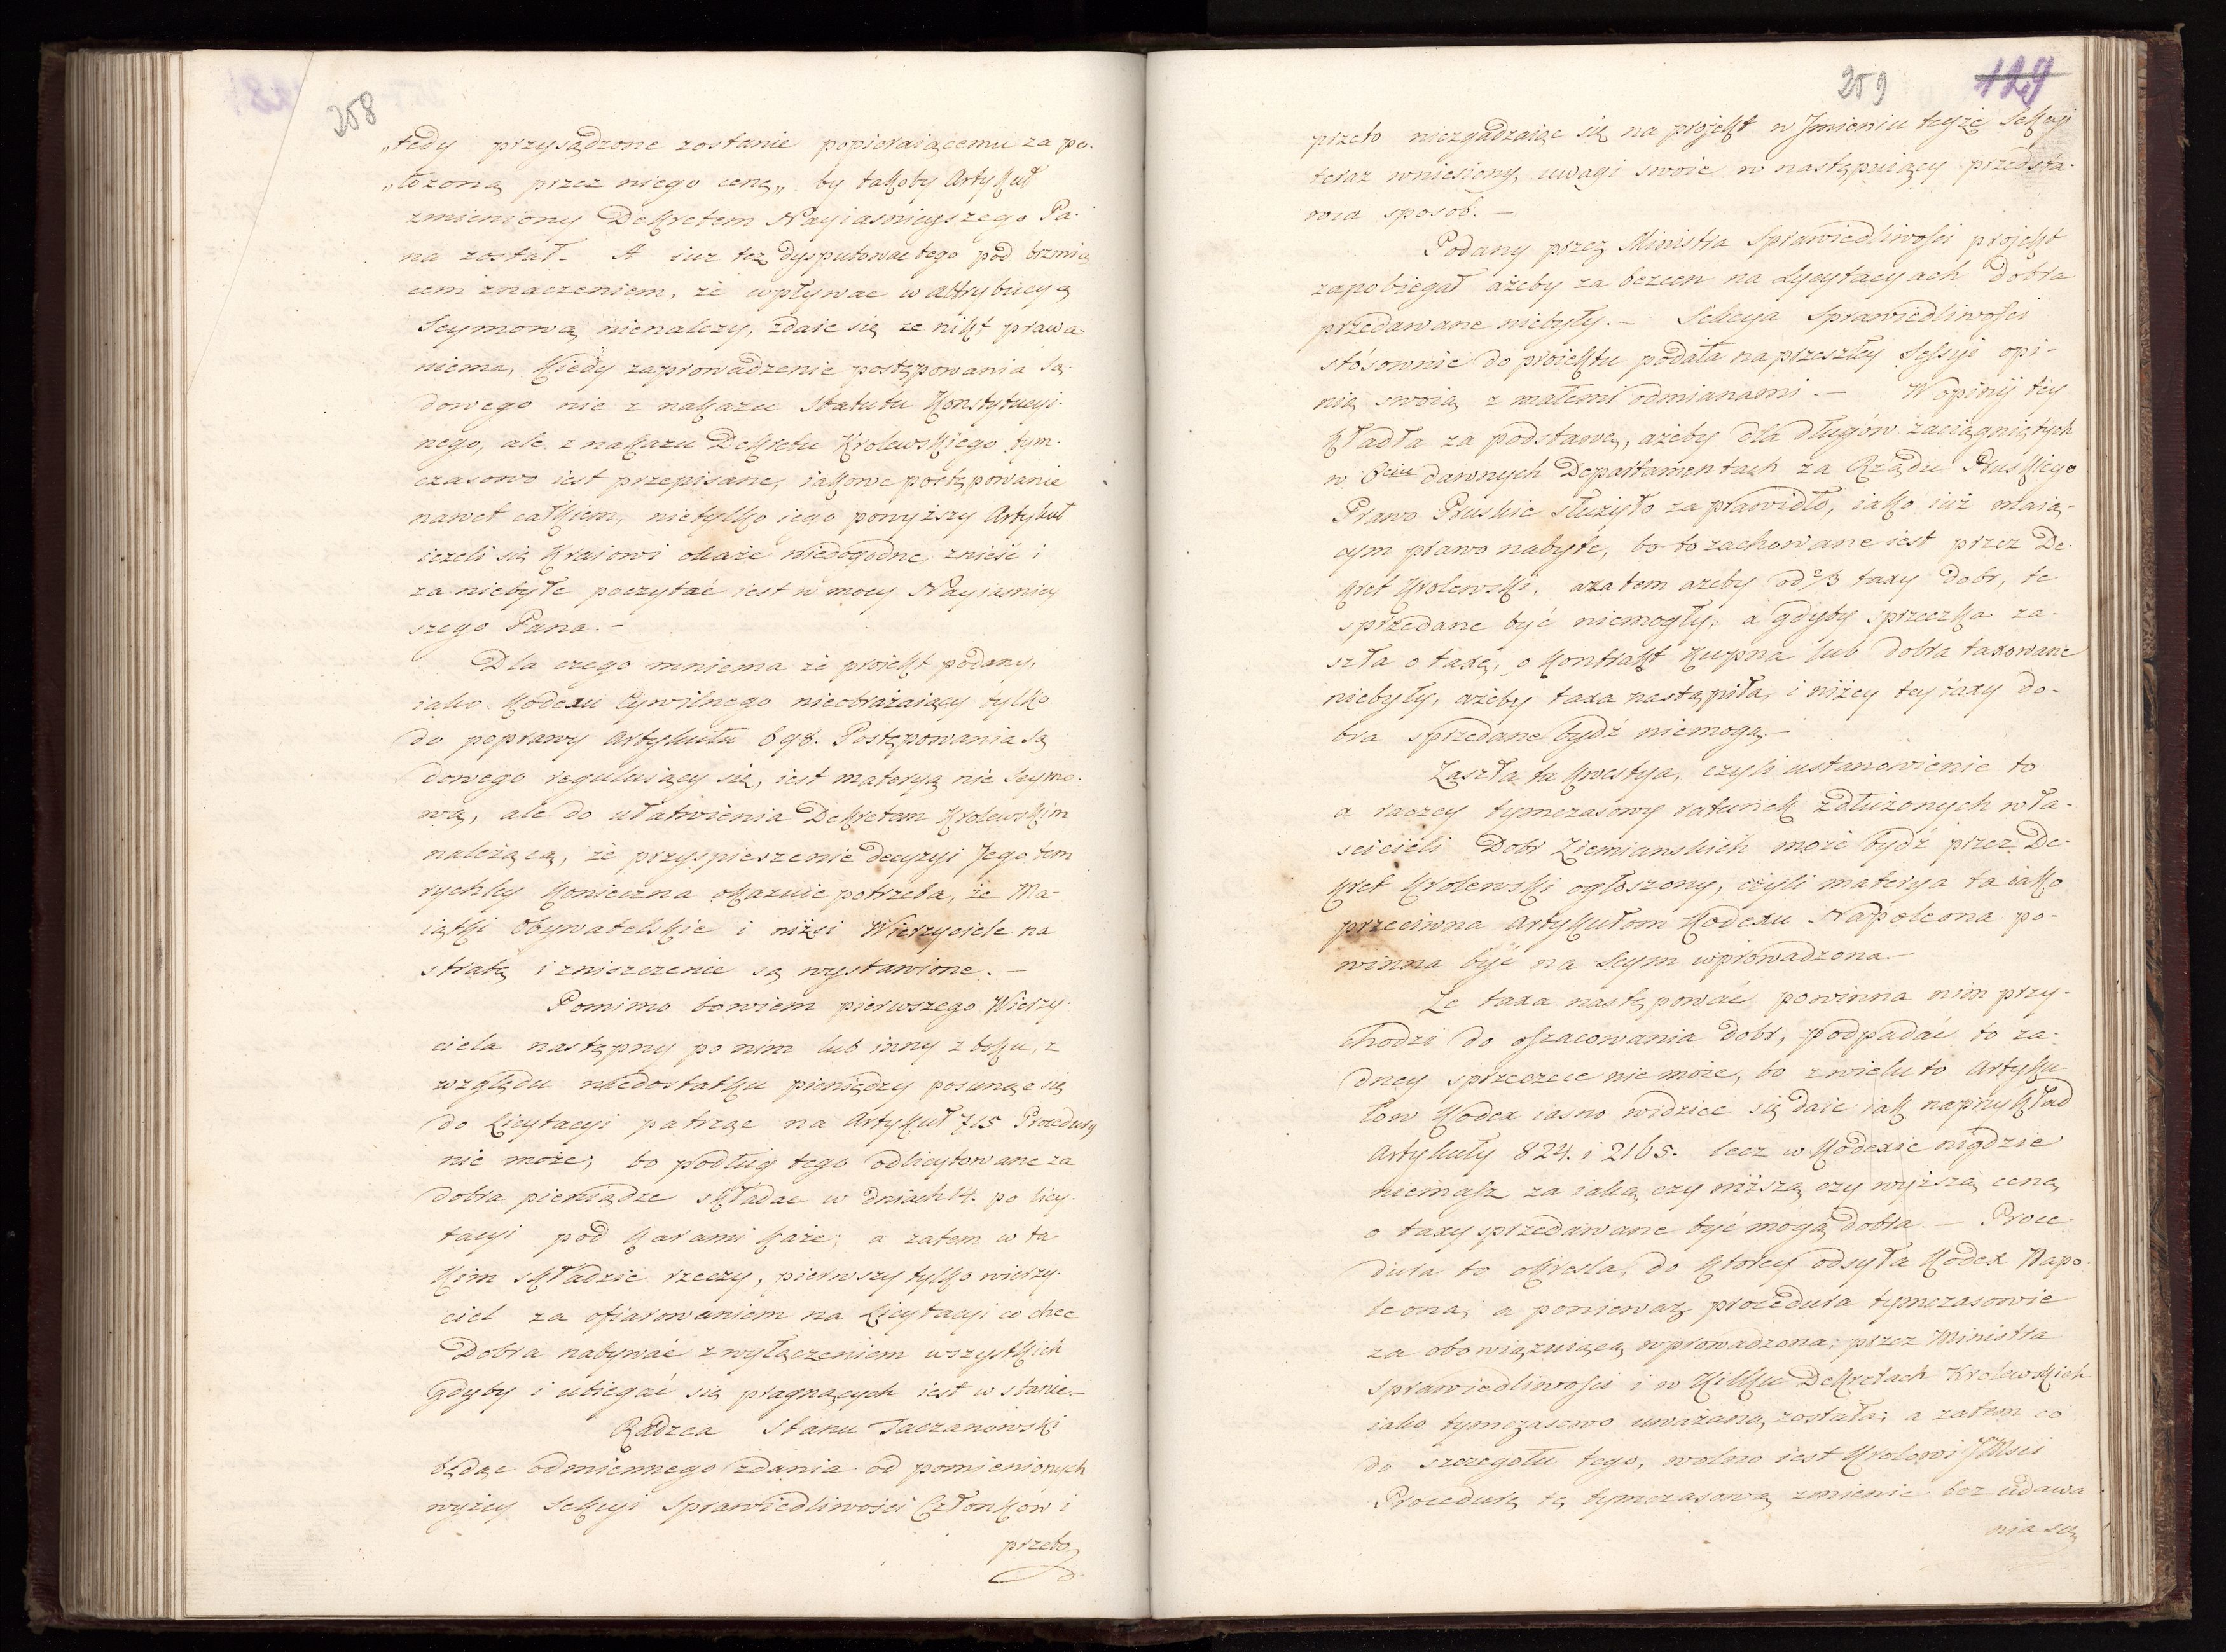 258
„tedy przysądzone zostanie popieraiącemu za po-
„łożoną przez niego cenę„ by takoby Artykuł
zmieniony Dekretem Nayiasnieyszego Pa-
na został. A iuz tez dysputowac tego pod brzmią
cem znaczeniem, że wpływac w attrybucyą
Seymową nienalezy, zdaie się ze nikt prawa
niema, kiedy zaprowadzenie postępowania Są-
dowego nie z nakazu Statutu Konstytucyi-
nego, ale z nakazu Dekretu Krolewskiego tym-
czasowo iest przepisane, iakowe postępowanie
nawet całkiem, nietylko iego powyższy Artykuł
iezeli się Kraiowi okaże niedogodne znieść i
za niebyłe poczytać iest w mocy Nayiasniey
szego Pana.-
Dla czego mniema że proiekt podany,
iako Kodexu Cywilnego nieobrażaiący tylko
do poprawy Artykułu 698. Postępowania Są
dowego reguluiący się, iest materyą nie Seymo-
wą, ale do ułatwienia Dekretem Krolewskim
należącą, że przyspieszenie decyzyi Jego tem
rychley konieczna okazuie potrzeba, że Ma-
iątki Obywatelskie i niżsi Wierzyciele na
stratę i zniszczenie są wystawione.-
Pomimo bowiem pierwszego Wierzy-
ciela następny po nim lub inny z boku, z
względu niedostatku pieniędzy posunąc się
do Licytacyi patrząc na Artykuł 715 Procedury
nie może; bo podług tego odlicytowane za
dobra pieniądze składac w dniach 14. po licy-
tacyi pod karami każe; a zatem w ta
kim składzie rzeczy, pierwszy tylko wierzy-
ciel za ofiarowaniem na Licytacyi co chce
Dobra nabywać z wyłączeniem wszystkich
gdyby i ubiegać się pragnących iest w stanie.-
Radzca Stanu Taczanowski
będąc odmiennego zdania od pomienionych
wyżey Sekcyi Sprawiedliwości Członków i
przeto
259 129
przeto niezgadzaiąc się na projekt w Jmieniu teyże Sekcyi
teraz wniesiony, uwagi swoie w następuiący przedsta-
wia sposob.-
Podany przez Ministra Sprawiedliwości projekt
zapobiegał ażeby za bezcen na Lycytacyach Dobra
przedawane niebyły.- Sekcya Sprawiedliwości
stósownie do proiektu podała na przeszłey Sessyi opi-
nią swoią z małemi odmianami.- W opinij tey
kładła za podstawę, ażeby dla długów zaciągniętych
w 6ciu dawnych Departamentach za Rządu Pruskiego
Prawo Pruskie służyło za prawidło, iako iuż maią-
cym prawo nabyte, bo to zachowane iest przez De-
kret Krolewski, a zatem ażeby od 2/3 taxy dobr, te
sprzedane być niemogły, a gdyby sprzeczka za-
szła o taxę, o Kontrakt Kupna lub dobra taxowane
niebyły, ażeby taxa nastąpiła, i niżey tey taxy do-
bra sprzedane bydź niemogą.-
Zaszła ta kwestya, czyli ustanowienie to
a raczey tymczasowy ratunek zdłużonych wła-
scicieli Dobr Ziemianskich może bydź przez De-
kret Krolewski ogłoszony, czyli materya ta iako
przeciwna Artykułom Kodexu Napoleona po-
winna być na Seym wprowadzona.-
Ze taxa następować powinna nim przy-
chodzi do oszacowania dobr, podpadać to ża-
dney sprzeczce nie może, bo z wielu to Artyku-
łow Kodex iasno widziec się daie iak naprzykład
Artykuły 824. i 2165. lecz w Kodexie nigdzie
niemasz za iaką czy niższą czy wyższą cenę
o taxy sprzedawane być mogą dobra.- Proce-
dura to okresla, do ktorey odsyła Kodex Napo-
leona, a ponieważ procedura tymczasowie
za obowiązuiącą wprowadzona; przez Ministra
Sprawiedliwości i w kilku Dekretach Krolewskich
iako tymczasowo uważana, została; a zatem co
do szczegołu tego, wolno iest Krolowi JMsci
Procedurę tę tymczasową zmienic bez udawa
nia się